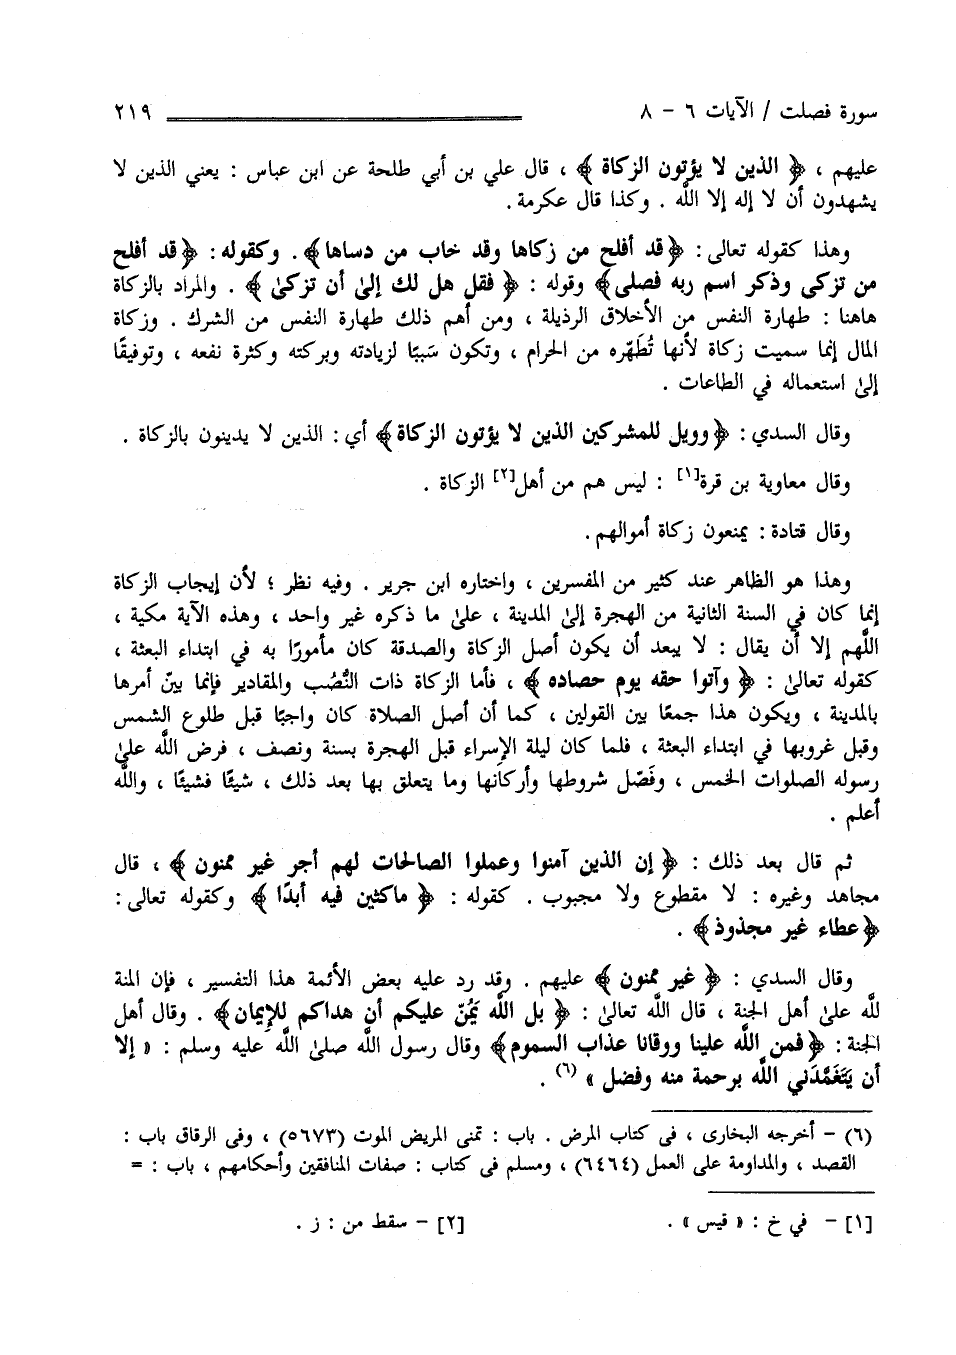 سورة فصلت / الآيات ٦ - ٨ ٢١٩
عليهم ، ﴿ الذين لا يؤتون الزكاة ﴾ ، قال علي بن أبي طلحة عن ابن عباس : يعني الذين لا
يشهدون أن لا إله إلا الله . وكذا قال عكرمة .
وهذا كقوله تعالى : ﴿ قد أفلح من زكاها وقد خاب من دساها ﴾ . وكقوله : ﴿ قد أفلح
من تزكى وذكر اسم ربه فصلى ﴾ وقوله : ﴿ فقل هل لك إلىٰ أن تزكىٰ ﴾ . والمراد بالزكاة
هاهنا : طهارة النفس من الأخلاق الرذيلة ، ومن أهم ذلك طهارة النفس من الشرك . وزكاة
المال إنما سميت زكاة لأنها تُطَهّره من الحرام ، وتكون سَببًا لزيادته وبركته وكثرة نفعه ، وتوفيقًا
إلىٰ استعماله في الطاعات .
وقال السدي : ﴿ وويل للمشركين الذين لا يؤتون الزكاة ﴾ أي : الذين لا يدينون بالزكاة .
وقال معاوية بن قرة[١] : ليس هم من أهل[٢] الزكاة .
وقال قتادة : يمنعون زكاة أموالهم .
وهذا هو الظاهر عند كثير من المفسرين ، واختاره ابن جرير . وفيه نظر ؛ لأن إيجاب الزكاة
إنما كان في السنة الثانية من الهجرة إلىٰ المدينة ، علىٰ ما ذكره غير واحد ، وهذه الآية مكية ،
اللَّهم إلا أن يقال : لا يبعد أن يكون أصل الزكاة والصدقة كان مأمورًا به في ابتداء البعثة ،
كقوله تعالىٰ : ﴿ وآتوا حقه يوم حصاده ﴾ ، فأما الزكاة ذات النُّصُب والمقادير فإنما بيّن أمرها
بالمدينة ، ويكون هذا جمعًا بين القولين ، كما أن أصل الصلاة كان واجبًا قبل طلوع الشمس
وقبل غروبها في ابتداء البعثة ، فلما كان ليلة الإسراء قبل الهجرة بسنة ونصف ، فرض اللَّه علىٰ
رسوله الصلوات الخمس ، وفَصّل شروطها وأركانها وما يتعلق بها بعد ذلك ، شيئًا فشيئًا ، واللَّه
أعلم .
ثم قال بعد ذلك : ﴿ إن الذين آمنوا وعملوا الصالحات لهم أجر غير ممنون ﴾ ، قال
مجاهد وغيره : لا مقطوع ولا مجبوب . كقوله : ﴿ ماكثين فيه أبدًا ﴾ وكقوله تعالى :
﴿ عطاء غير مجذوذ ﴾ .
وقال السدي : ﴿ غير ممنون ﴾ عليهم . وقد رد عليه بعض الأئمة هذا التفسير ، فإن المنة
للَّه علىٰ أهل الجنة ، قال اللَّه تعالىٰ : ﴿ بل اللَّه يَمُنّ عليكم أن هداكم للإيمان ﴾ . وقال أهل
الجنة : ﴿ فمن اللَّه علينا ووقانا عذاب السموم ﴾ وقال رسول اللَّه صلىٰ اللَّه عليه وسلم : « إلا
أن يَتَغَمَّدَني اللَّه برحمة منه وفضل » (٦) .
(٦) - أخرجه البخارى ، فى كتاب المرض . باب : تمنى المريض الموت (٥٦٧٣) ، وفى الرقاق باب :
القصد ، والمداومة على العمل (٦٤٦٤) ، ومسلم فى كتاب : صفات المنافقين وأحكامهم ، باب : =
[١] - في خ : « قيس » . [٢] - سقط من : ز .